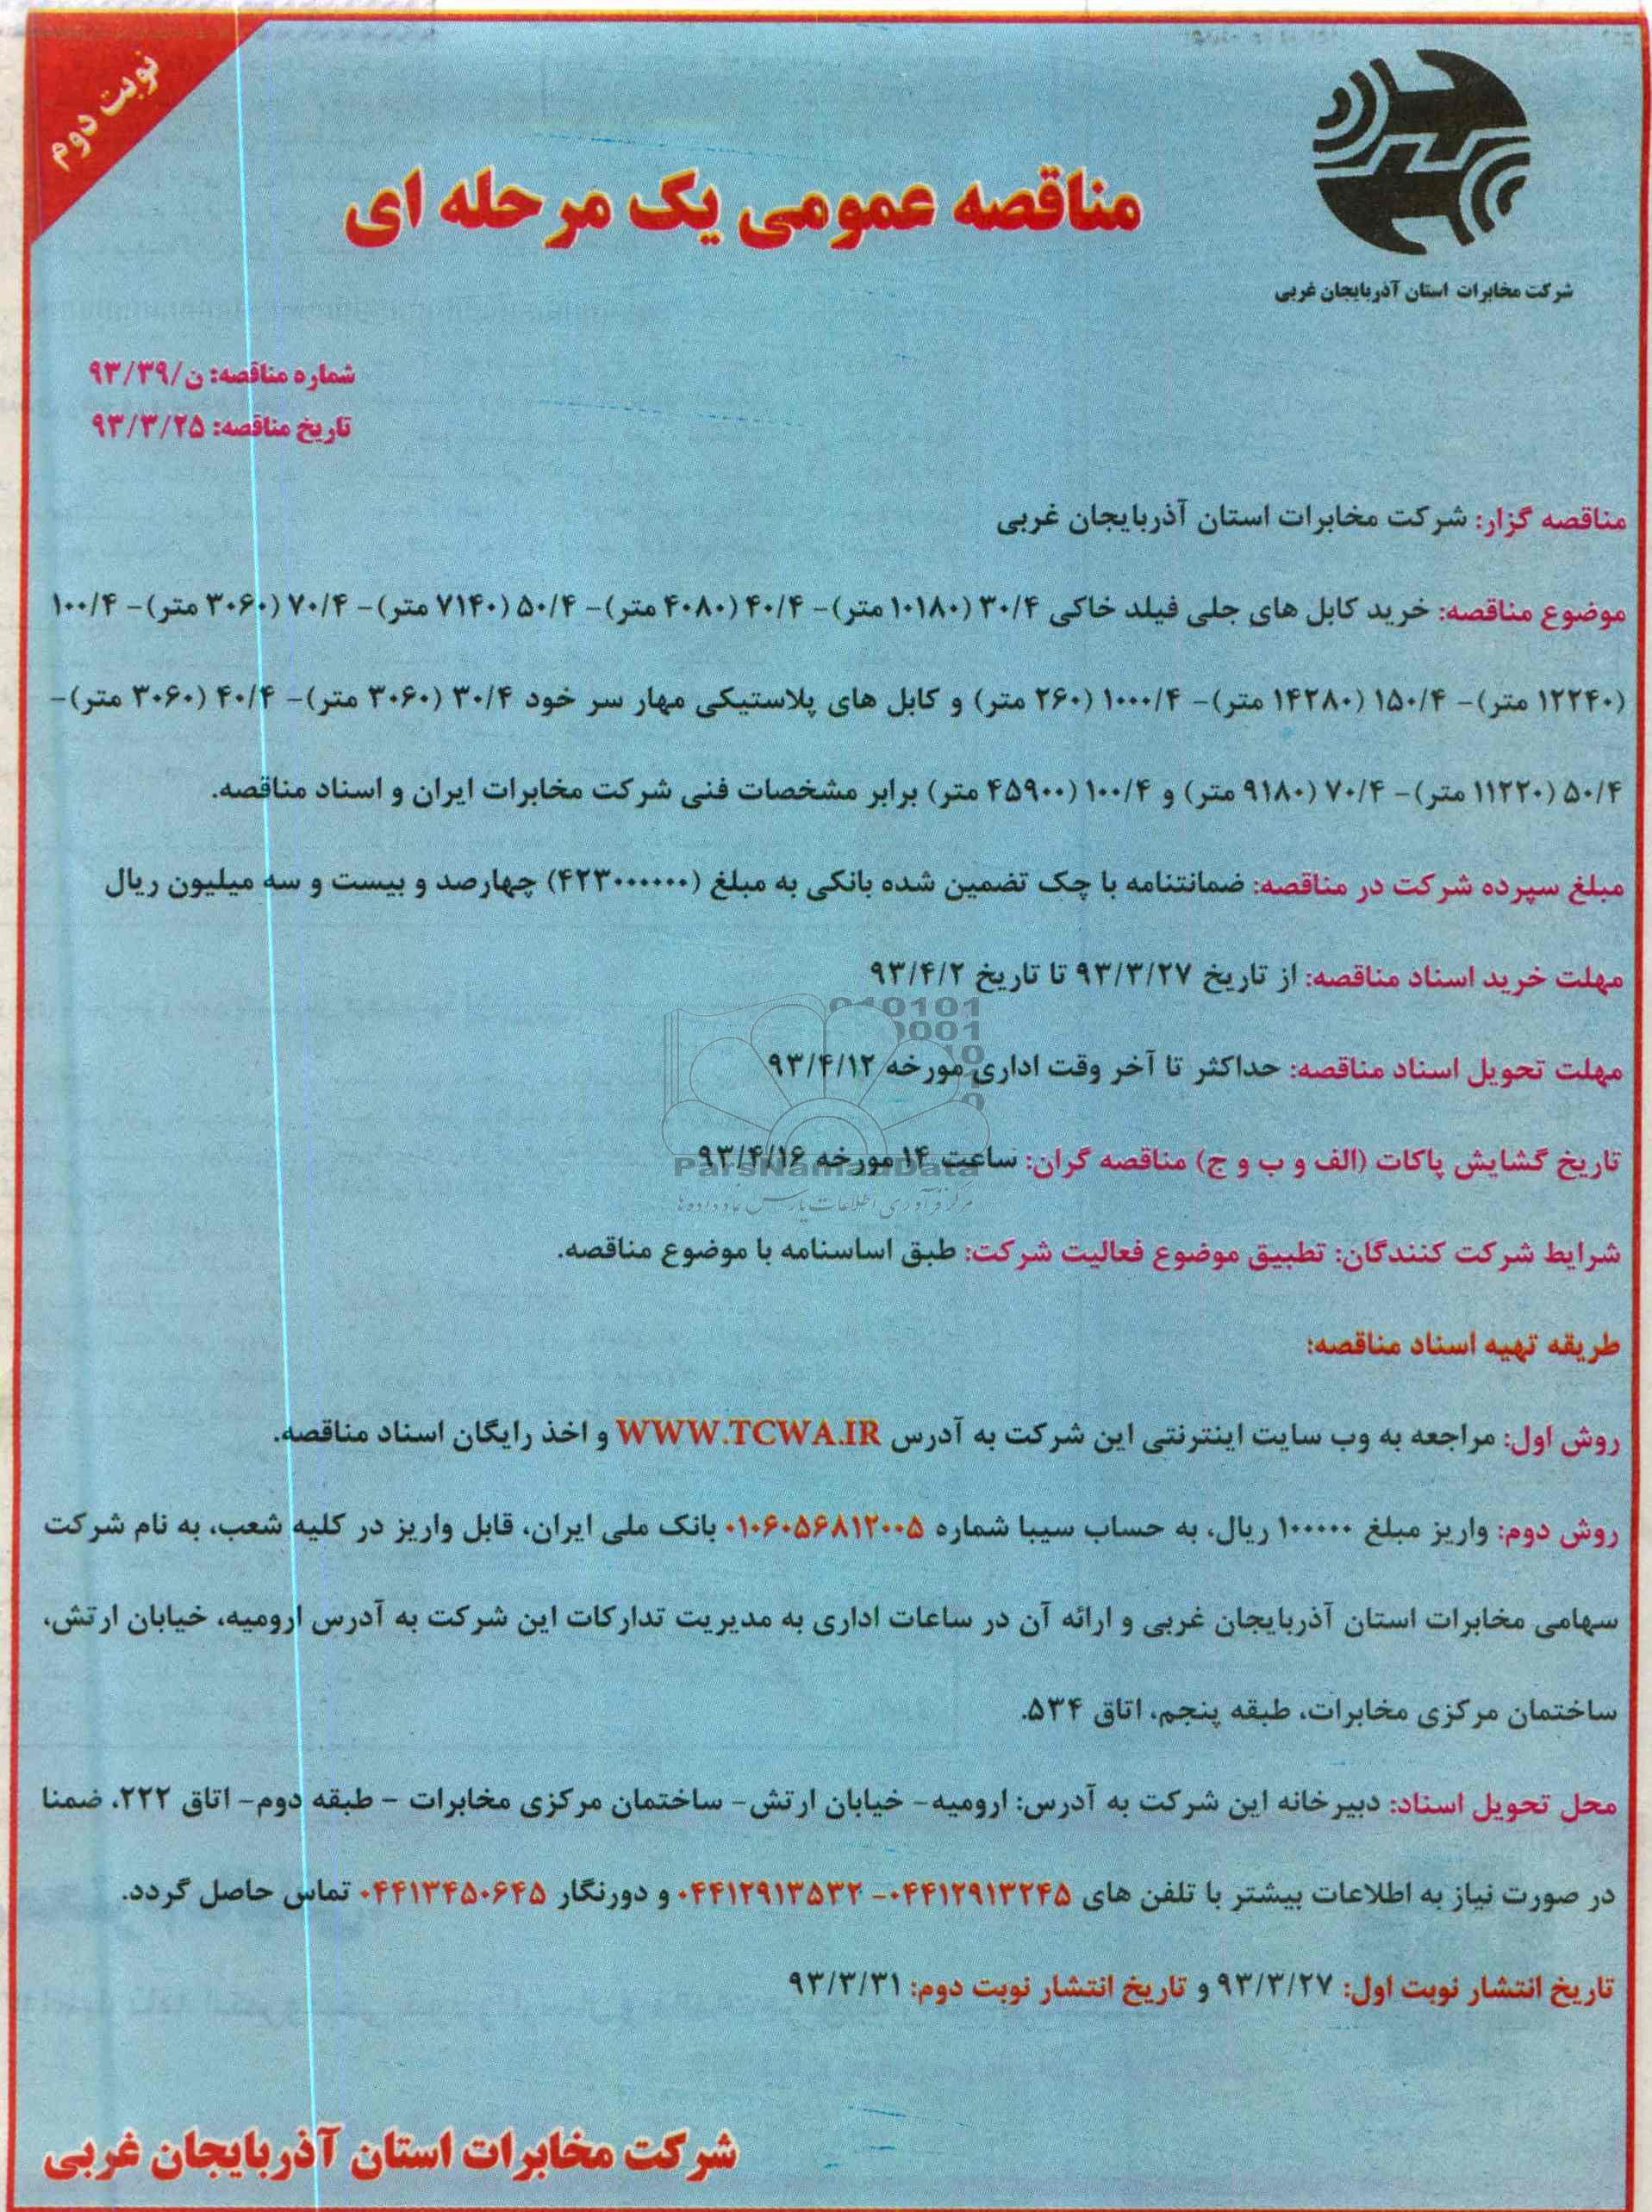 نوبت دوم
مناقصه عمومی یک مرحله ای
شرکت مخابرات استان آذربایجان غربی
شماره مناقصه: ن/۹۳/۳۹
تاریخ مناقصه: ۹۳/۳/۲۵
مناقصه گزار: شرکت مخابرات استان آذربایجان غربی
موضوع مناقصه: خرید کابل های جلی فیلد خاکی ۳۰/۴ (۱۰۱۸۰ متر)- ۴۰/۴ (۴۰۸۰ متر)- ۵۰/۴ (۷۱۴۰ متر)- ۷۰/۴ (۳۰۶۰ متر)- ۱۰۰/۴
(۱۲۲۴۰ متر)- ۱۵۰/۴ (۱۴۲۸۰ متر)- ۱۰۰۰/۴ (۲۶۰ متر) و کابل های پلاستیکی مهار سر خود ۳۰/۴ (۳۰۶۰ متر)- ۴۰/۴ (۳۰۶۰ متر)-
۵۰/۴ (۱۱۲۲۰ متر)- ۷۰/۴ (۹۱۸۰ متر) و ۱۰۰/۴ (۴۵۹۰۰ متر) برابر مشخصات فنی شرکت مخابرات ایران و اسناد مناقصه.
مبلغ سپرده شرکت در مناقصه: ضمانتنامه با چک تضمین شده بانکی به مبلغ (۴۲۳۰۰۰۰۰۰) چهارصد و بیست و سه میلیون ریال
مهلت خرید اسناد مناقصه: از تاریخ ۹۳/۳/۲۷ تا تاریخ ۹۳/۴/۲
مهلت تحویل اسناد مناقصه: حداکثر تا آخر وقت اداری مورخه ۹۳/۴/۱۲
تاریخ گشایش پاکات (الف و ب و ج) مناقصه گران: ساعت ۱۴ مورخه ۹۳/۴/۱۶
ParsNamadData
مرکز فرآوری اطلاعات پارس نماد داده ها
شرایط شرکت کنندگان: تطبیق موضوع فعالیت شرکت: طبق اساسنامه با موضوع مناقصه.
طریقه تهیه اسناد مناقصه:
روش اول: مراجعه به وب سایت اینترنتی این شرکت به آدرس WWW.TCWA.IR و اخذ رایگان اسناد مناقصه.
روش دوم: واریز مبلغ ۱۰۰۰۰۰ ریال، به حساب سیبا شماره ۰۱۰۶۰۵۶۸۱۲۰۰۵ بانک ملی ایران، قابل واریز در کلیه شعب، به نام شرکت
سهامی مخابرات استان آذربایجان غربی و ارائه آن در ساعات اداری به مدیریت تدارکات این شرکت به آدرس ارومیه، خیابان ارتش،
ساختمان مرکزی مخابرات، طبقه پنجم، اتاق ۵۳۴.
محل تحویل اسناد: دبیرخانه این شرکت به آدرس: ارومیه- خیابان ارتش- ساختمان مرکزی مخابرات - طبقه دوم- اتاق ۲۲۲، ضمنا
در صورت نیاز به اطلاعات بیشتر با تلفن های ۰۴۴۱۲۹۱۳۲۴۵- ۰۴۴۱۲۹۱۳۵۳۲ و دورنگار ۰۴۴۱۳۴۵۰۶۴۵ تماس حاصل گردد.
تاریخ انتشار نوبت اول: ۹۳/۳/۲۷ و تاریخ انتشار نوبت دوم: ۹۳/۳/۳۱
شرکت مخابرات استان آذربایجان غربی